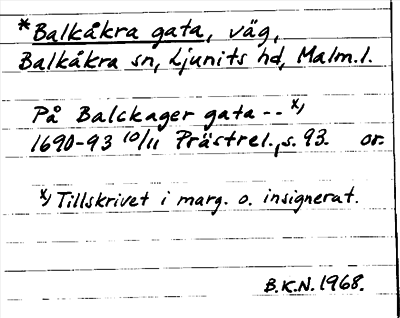 *Balkåkra gata, väg,
Balkåkra sn, Ljunits hd, Malm.l.
På Balckager gata -- x)
1690-93 10/11 Prästrel., s. 93. or.
x) Tillskrivet i marg. o. insignerat.
B.K.N. 1968.